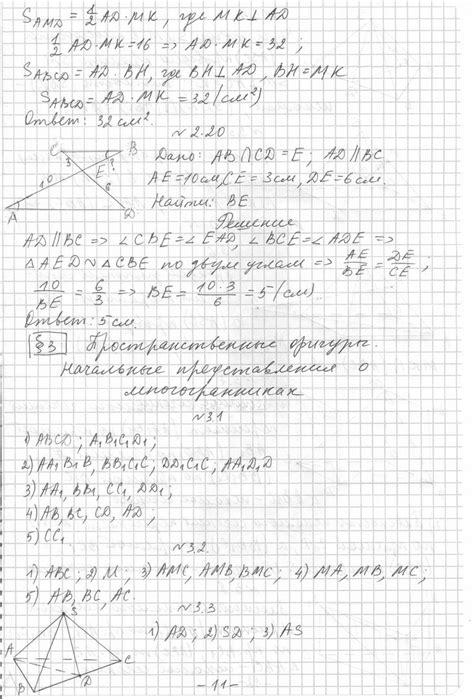 S_AMD = 1/2 AD·MK, где MK⊥AD
1/2 AD·MK=16 => AD·MK=32;
S_ABCD = AD·BH, где BH⊥AD, BH=MK
S_ABCD = AD·MK = 32 (см²)
Ответ: 32 см².
№2.20
C B 3 E ? 10 6 A D
Дано: AB∩CD=E; AD∥BC
AE=10см, CE=3см, DE=6см.
Найти: BE
Решение
AD∥BC => ∠CBE=∠EAD, ∠BCE=∠ADE =>
△AED∾△CBE по двум углам => AE/BE = DE/CE;
10/BE = 6/3 => BE = 10·3/6 = 5 (см)
Ответ: 5см.
§3 Пространственные фигуры.
Начальные представления о
многогранниках
№3.1
1) ABCD; A₁B₁C₁D₁;
2) AA₁B₁B, BB₁C₁C, DD₁C₁C, AA₁D₁D
3) AA₁, BB₁, CC₁, DD₁;
4) AB, BC, CD, AD;
5) CC₁
№3.2.
1) ABC; 2) M; 3) AMC, AMB, BMC; 4) MA, MB, MC;
5) AB, BC, AC.
№3.3
S A B D C
1) AD; 2) SD; 3) AS
-11-